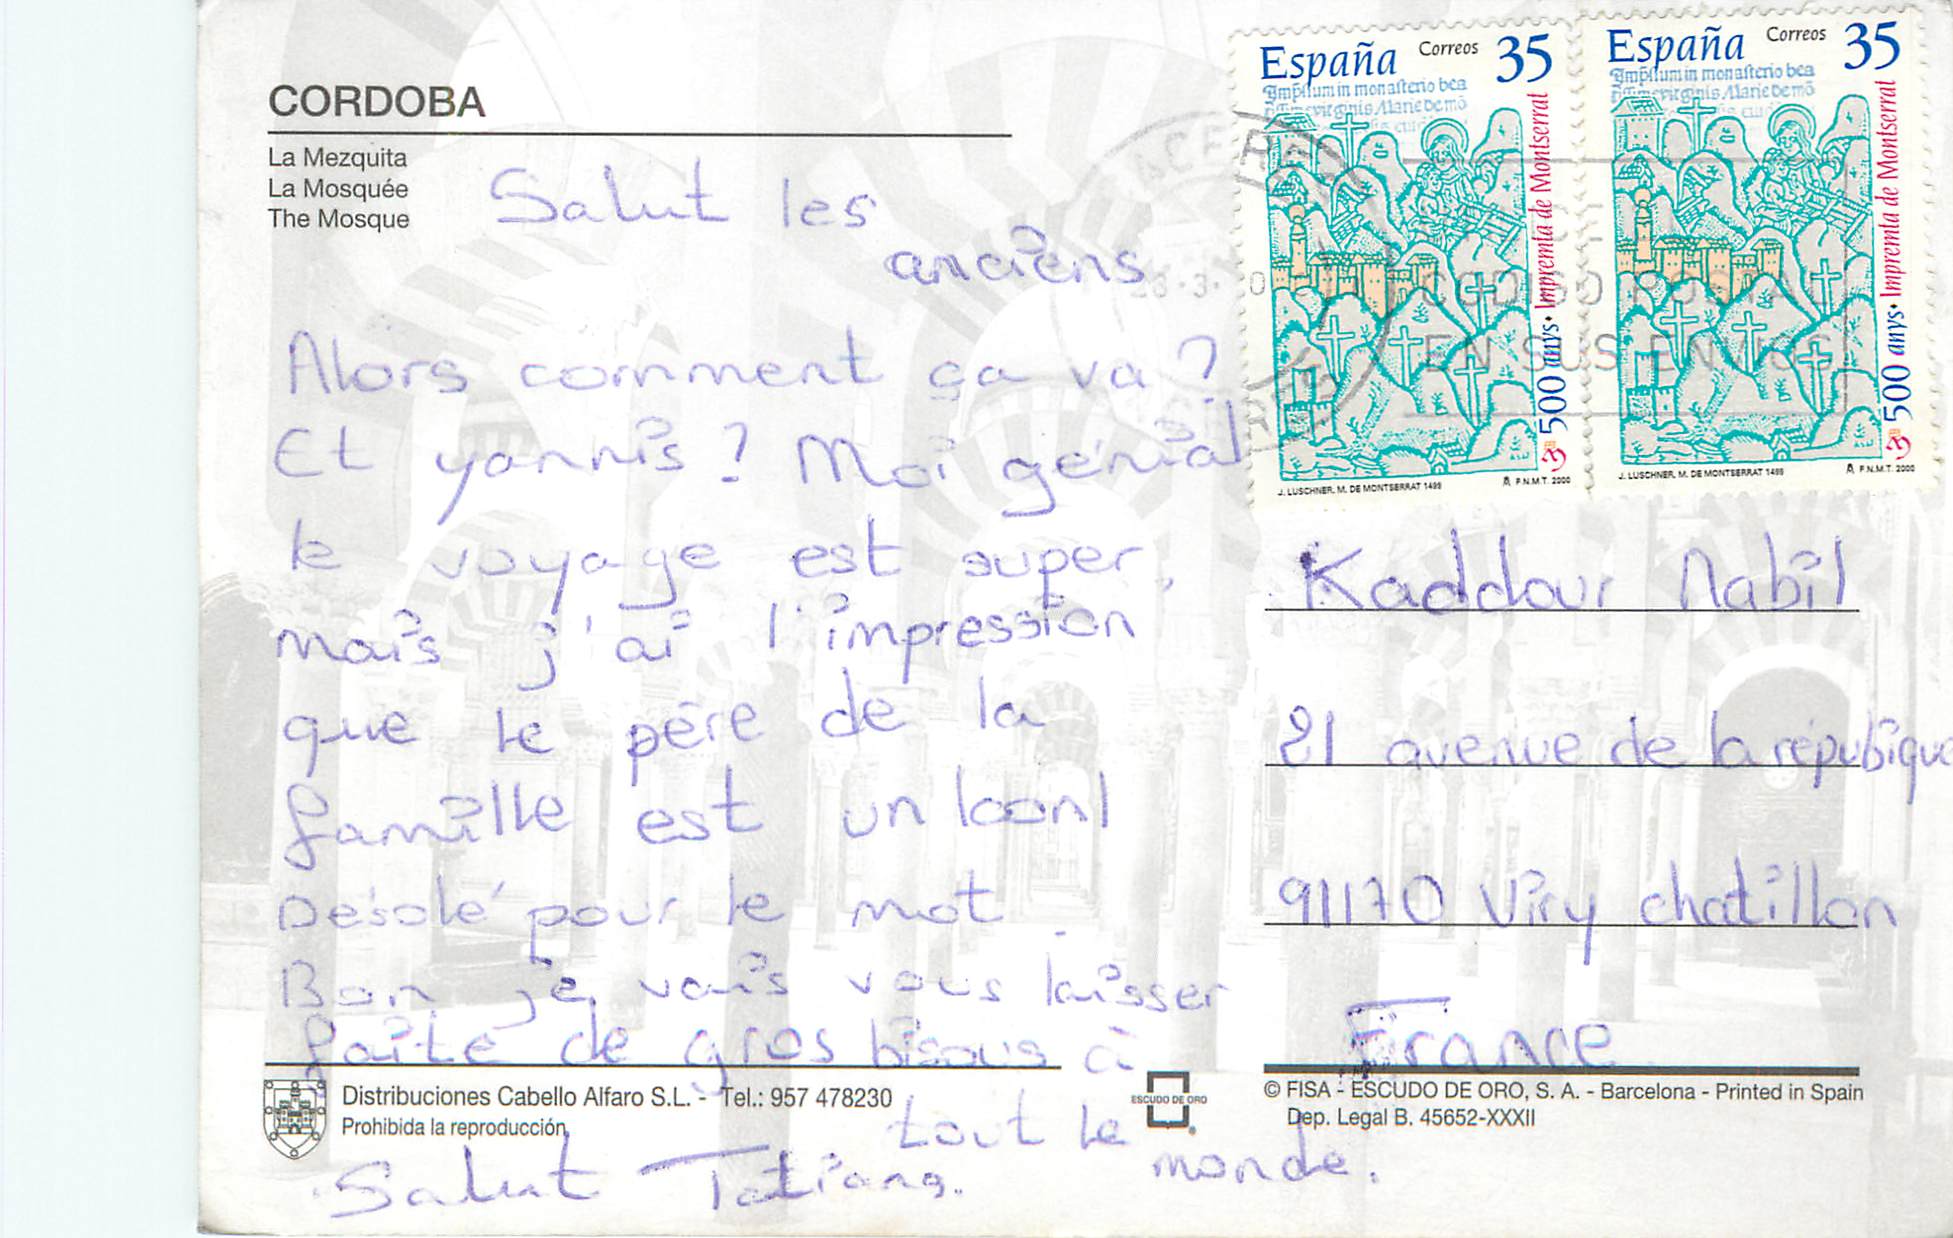 CORDOBA
La Mezquita
La Mosquée
The Mosque
Salut les
anciens
Alors comment ça va ?
Et yannis ? Moi génial
le voyage est super,
mais j'ai l'impression
que le père de la
famille est un
Désolé pour le mot.
Bon je vais vous laisser
faite de gros bisous à
tout le
monde.
Salut Tatiana.
Distribuciones Cabello Alfaro S.L. - Tel.: 957 478230
Prohibida la reproducción
ESCUDO DE ORO
España Correos 35
500 anys • Impremta de Montserrat
J. LUSCHNER, M. DE MONTSERRAT 1499
F.N.M.T. 2000
España Correos 35
500 anys • Impremta de Montserrat
J. LUSCHNER, M. DE MONTSERRAT 1499
F.N.M.T. 2000
EN SUS ENVIOS
Kaddour Nabil
21 avenue de la répubique
91170 Viry chatillon
France
© FISA - ESCUDO DE ORO, S. A. - Barcelona - Printed in Spain
Dep. Legal B. 45652-XXXII